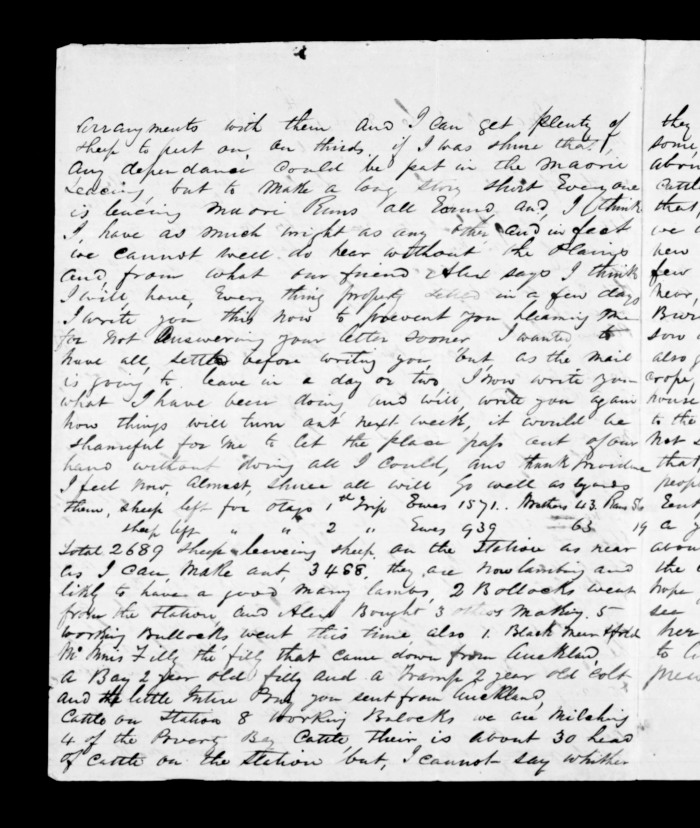 arrangments with them and I can get plenty of
sheep to put on, on thirds, if I was shure that
any dependance could be put in the maorie
Leaceing, but to make a long story short Everyone
is leaceing maori Runs all Round and, I think
I, have as much wright as any other and in fact
we cannot well do hear without the Plains
and, from what our friend Alex says I think
I will, have, Every thing properly settled in a few days
I write you this now to prevent you blaming me
for not Answering your letter sooner I wanted to
have all, settled before writing you, but as the mail
is going to leave in a day or two I now write you
what I have been doing and will write you again
how things will turn out next week, it would be
shameful for me to let the place pass out of our
hand without doing all I could, and thank providence
I feel now, almost, shure all will Go well as regards
them, sheep left for otago 1st trip Ewes 1571.. Wethers 43 Rams 56
sheep left " " 2 " Ewes 939 63 19
Total 2689 sheep leaveing sheep on the Station as near
as I can, make out, 3468, they are now lambing and
likly to have a good many lambs, 2 Bollocks went
from the station, and Alex Bought 3 others making 5
working Bullocks went this time, also 1 Black mear
Mc Filly the filly that came down from Auckland,
a Bay 2 year old filly and a 2 year old Colt
and the little Pony you sent from Auckland,
Cattle on Station 8 working Bulocks we are milching
4 of the Poverty Bay Cattle, their is about 30 head
of cattle on the Station but, I cannot say whither
they
some,
cattle
that,
we
new
few
near,
sow
also
crope,
house
to the
not
that
people
a
abou
the
hope
see
her
to